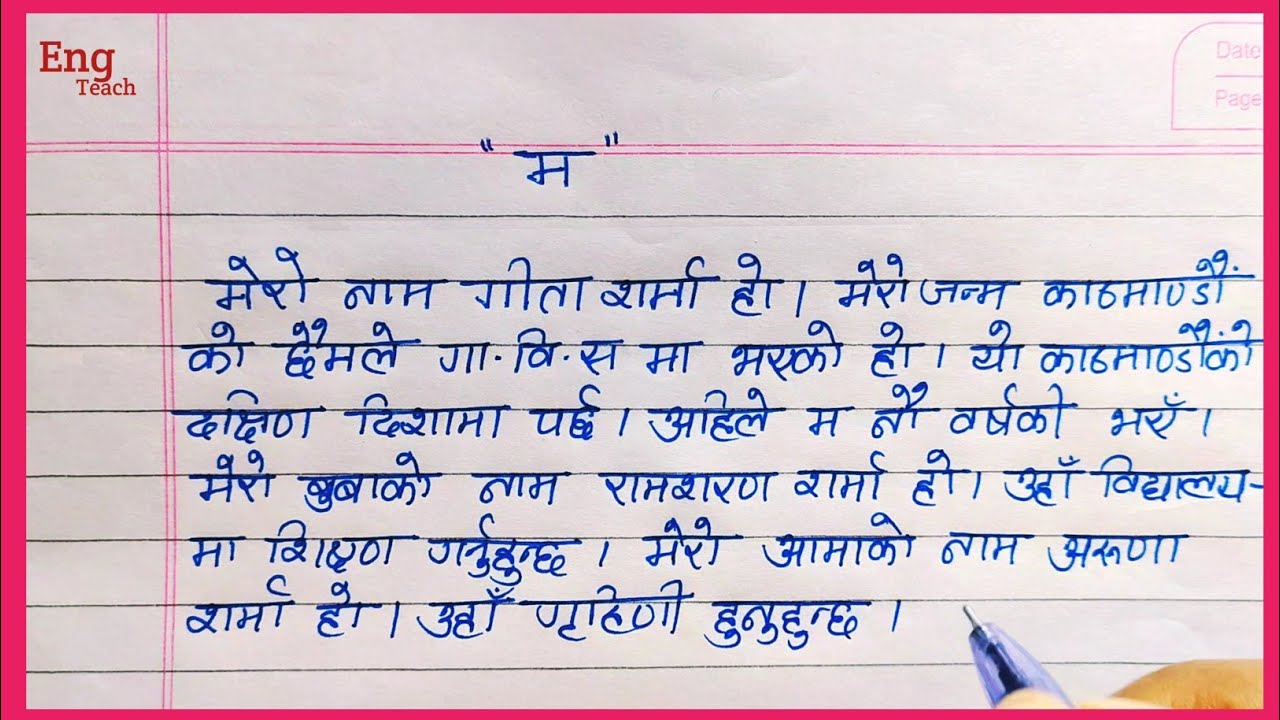 Eng
Teach
Date
Page
"म"
मेरो नाम गीता शर्मा हो। मेरो जन्म काठमाण्डौं
को छैमले गा.वि.स मा भएको हो। यो काठमाण्डौंको
दक्षिण दिशामा पर्छ। अहिले म नौ वर्षकी भएँ।
मेरो बुबाको नाम रामशरण शर्मा हो। उहाँ विद्यालय-
मा शिक्षण गर्नुहुन्छ। मेरो आमाको नाम अरूणा
शर्मा हो। उहाँ गृहिणी हुनुहुन्छ।